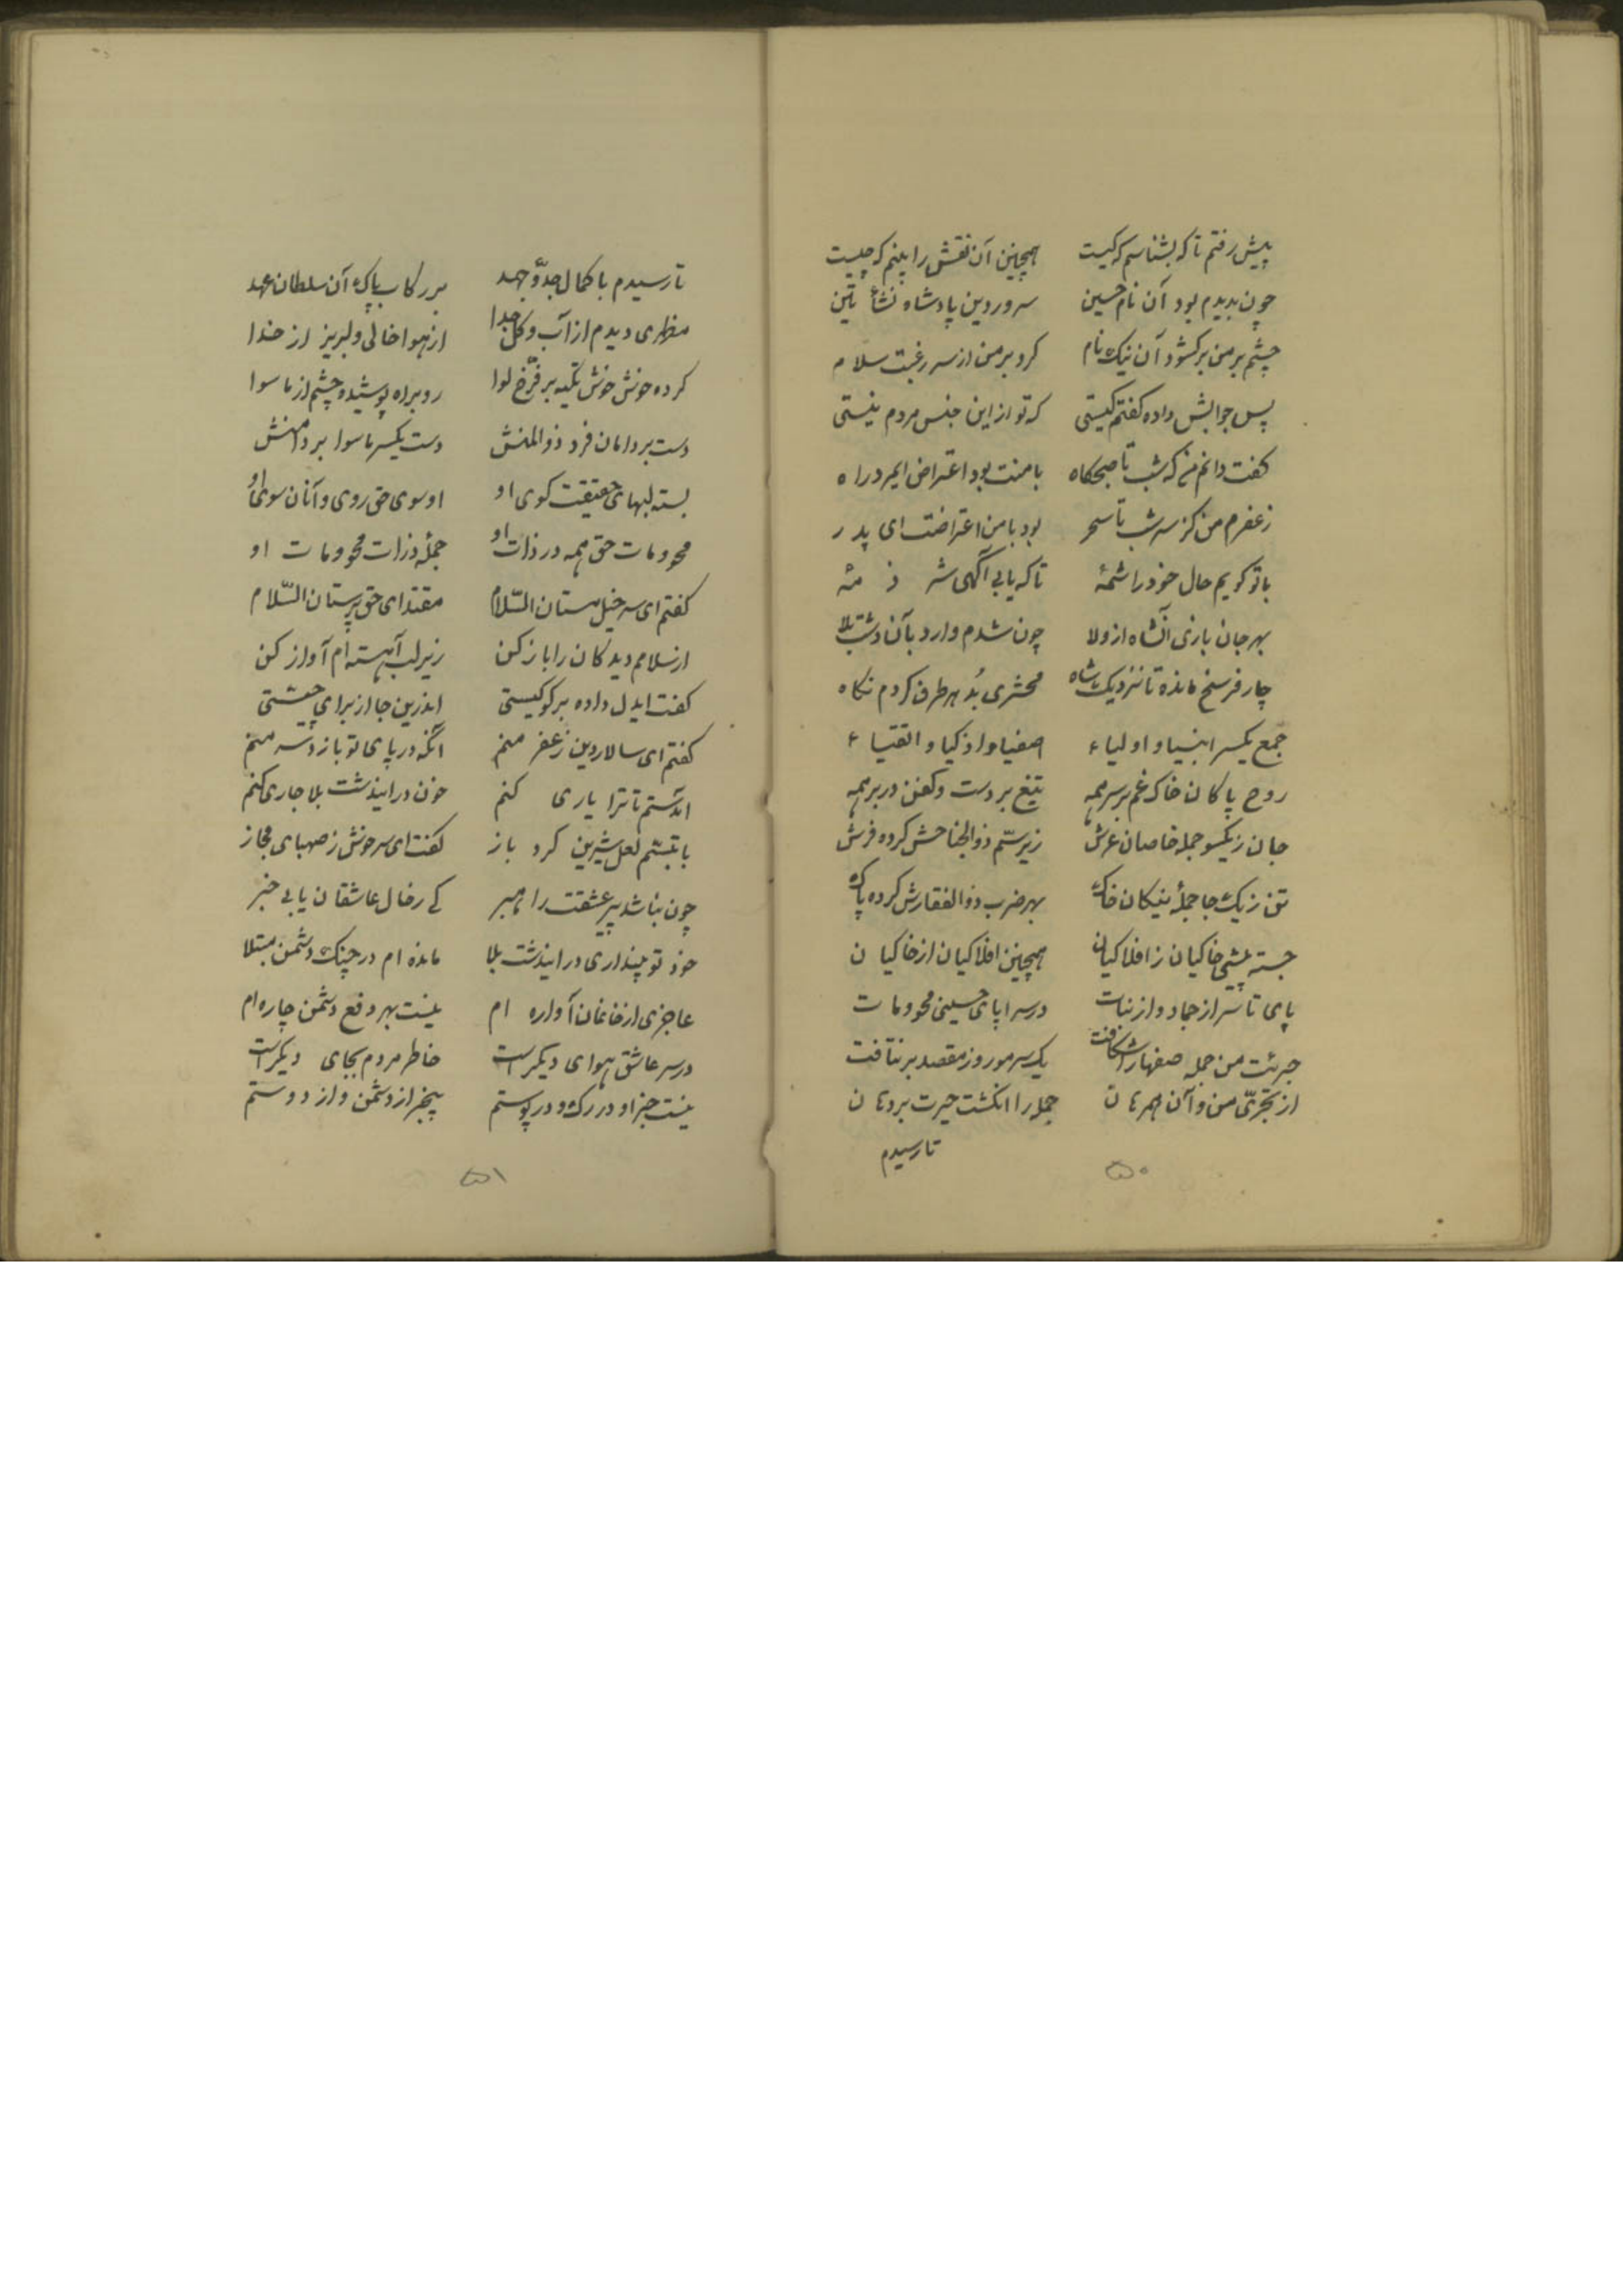 پیش رفتم تا که بشناسم که کیست همچنین آن نقش را بینم که چیست
چون بدیدم بود آن نام حسین سرور دین پادشاه نشأتین
چشم بر من برکشود آن نیک نام کرد بر من از سر رغبت سلام
پس جوابش داده کفتم کیستی که تو از این جنس مردم نیستی
کفت دانم من که شب تا صبحکاه با منت بود اعتراض ایمرد راه
زعفرم من کز سر شب تا سحر بود با من اعتراضت ای پدر
با تو کویم حال خود را شمهٔ تا که یابی آگهی شر ذ مهٔ
بهر جان بازی آنشاه از ولا چون شدم وارد بآن دشت بلا
چار فرسخ مانده تا نزدیک شاه محشری بُد بهر طرف کردم نکاه
جمع یکسر انبیا و اولیاء اصفیا و اذکیا و اتقیاء
روح پاکان خاک غم بر سر همه تیغ بر دست و کفن در بر همه
جان زیکسو جمله خاصان عرش زیر سمّ ذوالجناحش کرده فرش
تن زیک جا جملهٔ نیکان خاک بهر ضرب ذوالفقارش کرده پاک
جسته پیشی خاکیان ز افلاکیان همچنین افلاکیان از خاکیان
پای تا سر از جماد و از نبات در سراپای حسینی محو و مات
جرئت من جمله صفها را شکافت یک سر مو رو ز مقصد برنتافت
از تجرّی من و آن همرهان جمله را انکشت حیرت بر دهان
تا رسیدم
۵۰
تا رسیدم با کمال جدّ و جهد بر رکاب پاک آن سلطان عهد
مظهری دیدم از آب و کل جدا از هوا خالی و لبریز از خدا
کرده خوش خوش تکیه بر فرّخ لوا رو براه پوشیده چشم از ما سوا
دست بر دامان فرد ذوالمنش دست یکسر ما سوا بر دامنش
بسته لبهای حقیقت کوی او او سوی حق روی و آنان سوی او
محو و مات حق همه در ذات او جملهٔ ذرات محو و مات او
کفتم ای سر خیل مستان السّلام مقتدای حق پرستان السّلام
از سلامم دیدکان را باز کن زیر لب آهسته ام آواز کن
کفت ایدل داده برکو کیستی اندرین جا از برای چیستی
کفتم ای سالار دین زعفر منم آنکه در پای تو بازد سر منم
آمدستم تا ترا یاری کنم خون در ایندشت بلا جاری کنم
با تبسّم لعل شیرین کرد باز کفت ای سرخوش ز صهبای مجاز
چون نباشد پیر عشقت راهبر کی ز حال عاشقان یابی خبر
خود تو پنداری در ایندشت بلا مانده ام در چنک دشمن مبتلا
عاجزی از خانمان آواره ام نیست بهر دفع دشمن چاره ام
در سر عاشق هوای دیکر است خاطر مردم بجای دیکر است
نیست جز او در رک و در پوستم بیخبر از دشمن و از دوستم
۵۱